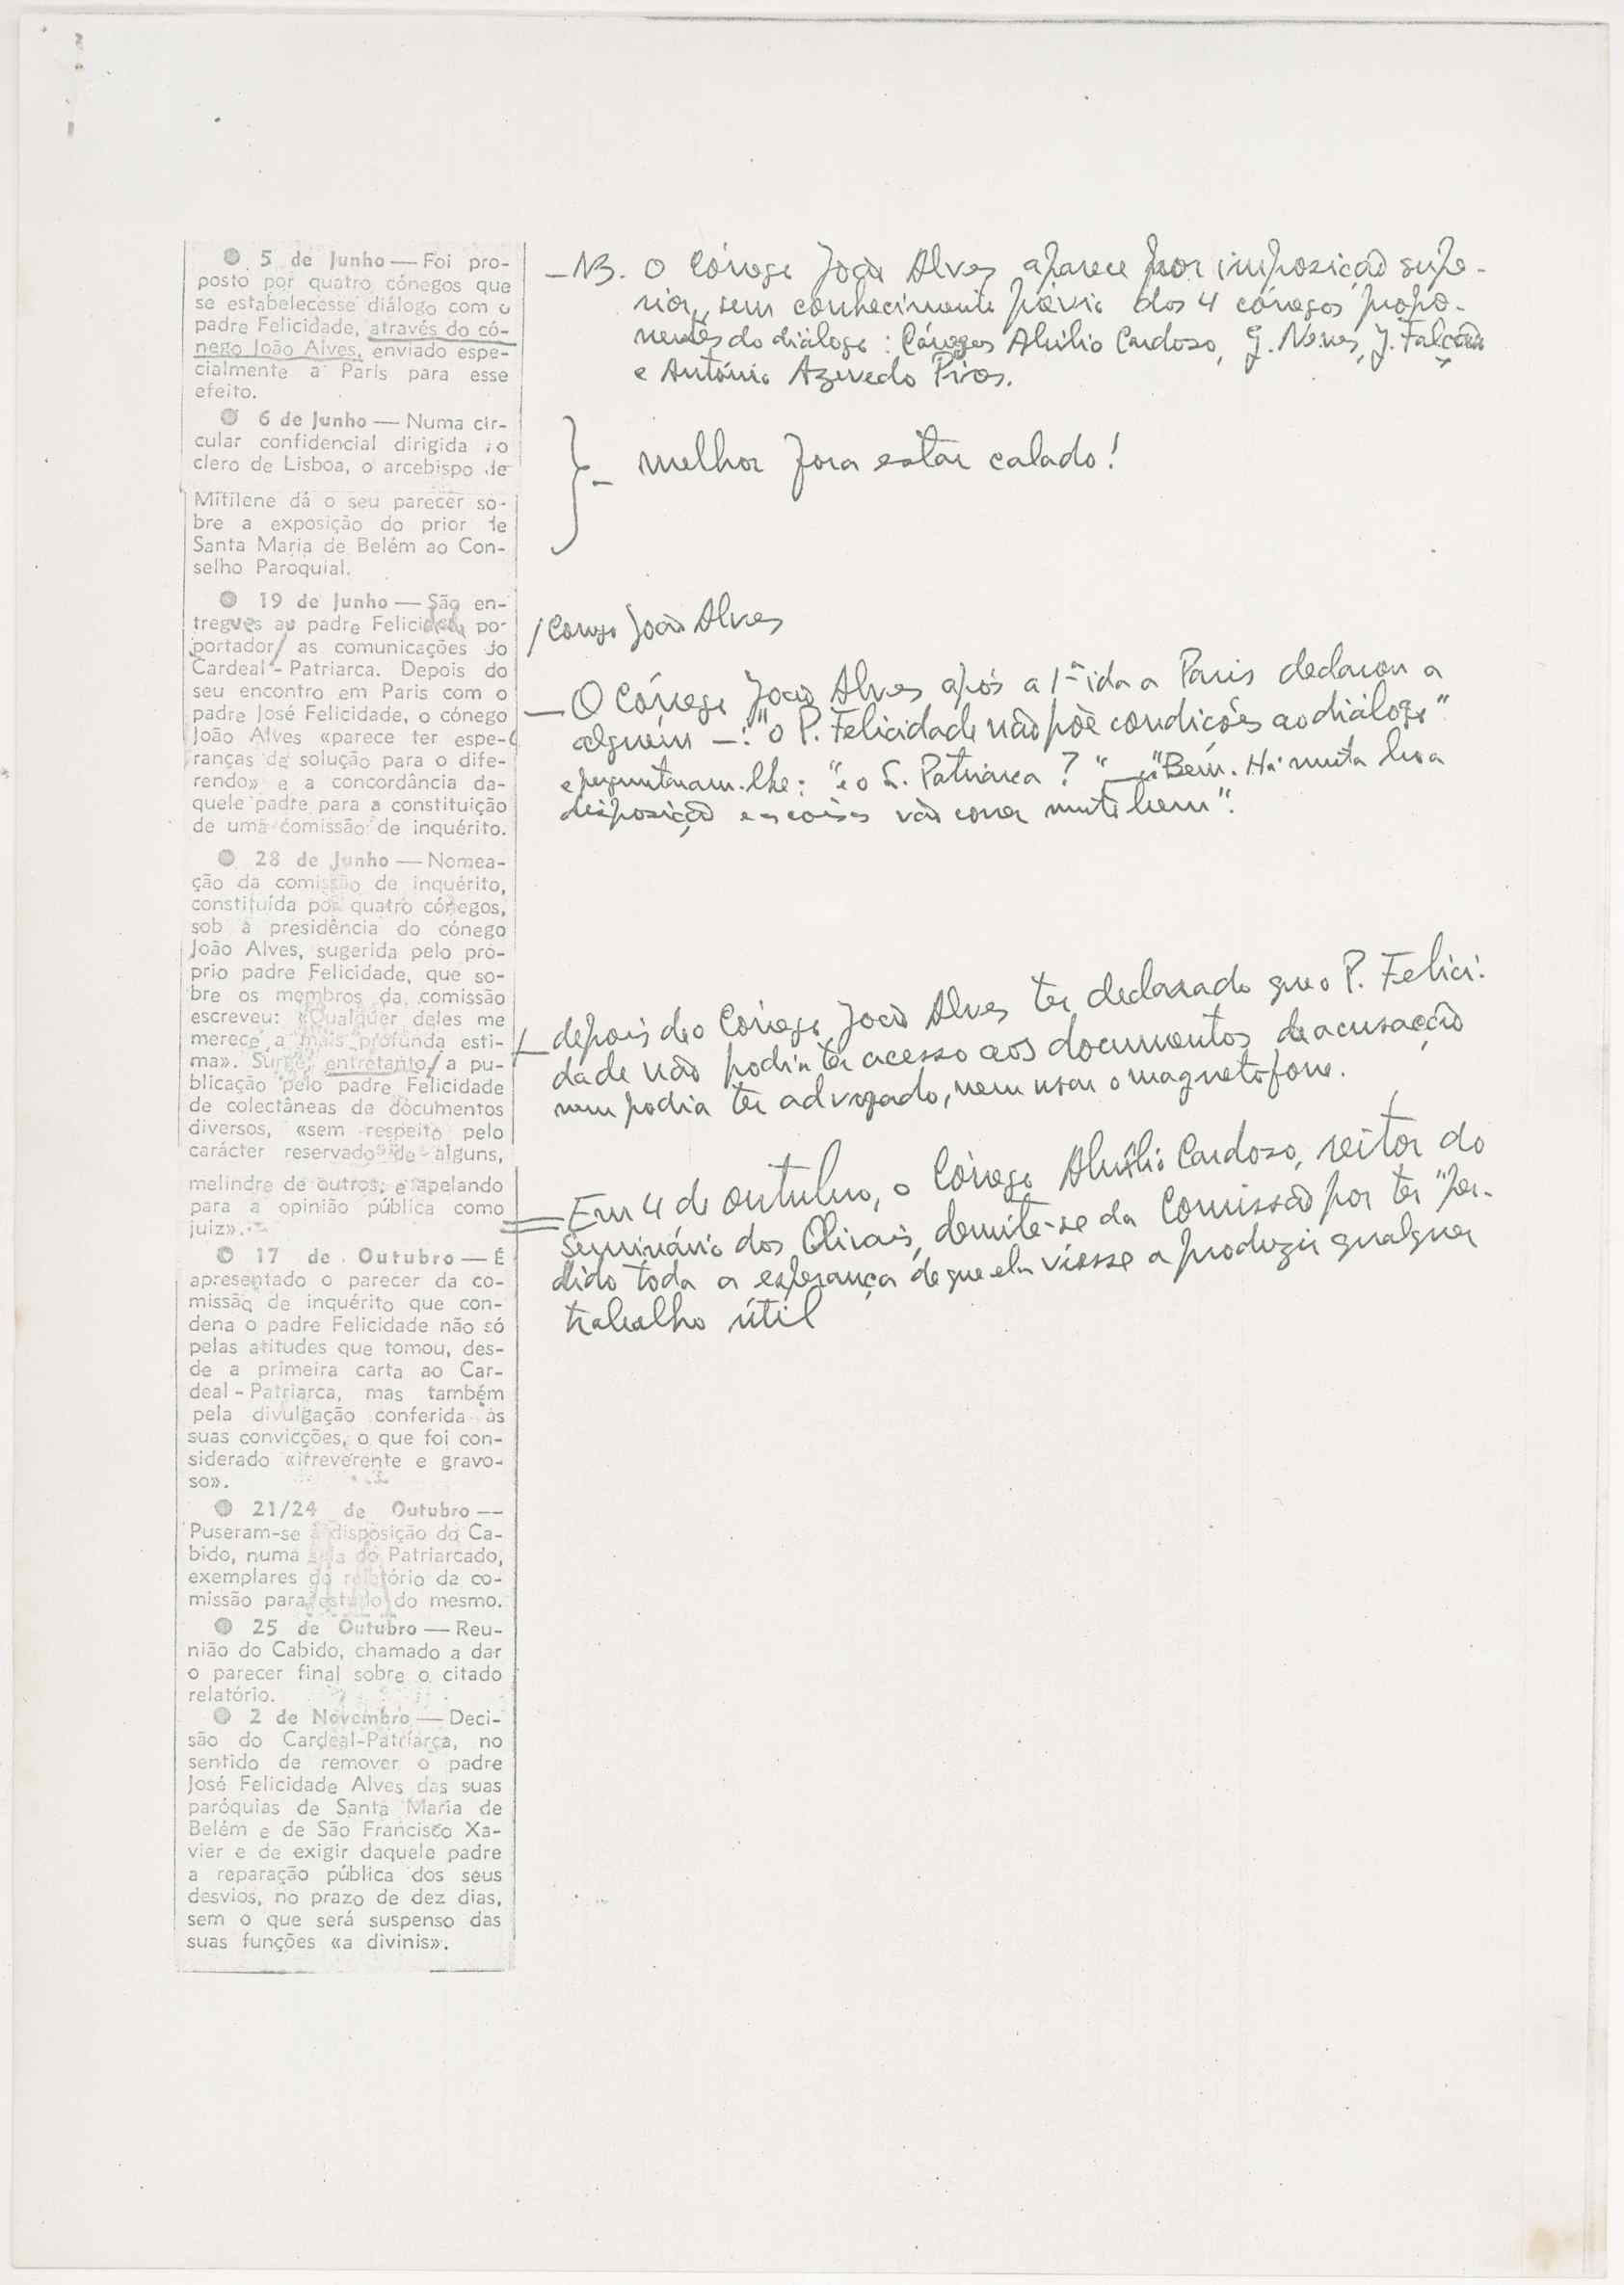 ● 5 de Junho — Foi pro-
posto por quatro cónegos que
se estabelecesse diálogo com o
padre Felicidade, através do có-
nego João Alves, enviado espe-
cialmente a Paris para esse
efeito.
● 6 de Junho — Numa cir-
cular confidencial dirigida ao
clero de Lisboa, o arcebispo de
Mitilene dá o seu parecer so-
bre a exposição do prior de
Santa Maria de Belém ao Con-
selho Paroquial.
● 19 de Junho — São en-
tregues ao padre Felicidade po-
portador/ as comunicações do
Cardeal-Patriarca. Depois do
seu encontro em Paris com o
padre José Felicidade, o cónego
João Alves «parece ter espe-
ranças de solução para o dife-
rendo» e a concordância da-
quele padre para a constituição
de uma comissão de inquérito.
● 28 de Junho — Nomea-
ção da comissão de inquérito,
constituída por quatro cónegos,
sob a presidência do cónego
João Alves, sugerida pelo pró-
prio padre Felicidade, que so-
bre os membros da comissão
escreveu: «Qualquer deles me
merece a mais profunda esti-
ma». Surge, entretanto/ a pu-
blicação pelo padre Felicidade
de colectâneas de documentos
diversos, «sem respeito pelo
carácter reservado de alguns,
melindre de outros, e apelando
para a opinião pública como
juiz».
● 17 de Outubro — É
apresentado o parecer da co-
missão de inquérito que con-
dena o padre Felicidade não só
pelas atitudes que tomou, des-
de a primeira carta ao Car-
deal-Patriarca, mas também
pela divulgação conferida às
suas convicções, o que foi con-
siderado «irreverente e gravo-
so».
● 21/24 de Outubro —
Puseram-se à disposição do Ca-
bido, numa sala do Patriarcado,
exemplares do relatório da co-
missão para estudo do mesmo.
● 25 de Outubro — Reu-
nião do Cabido, chamado a dar
o parecer final sobre o citado
relatório.
● 2 de Novembro — Deci-
são do Cardeal-Patriarca, no
sentido de remover o padre
José Felicidade Alves das suas
paróquias de Santa Maria de
Belém e de São Francisco Xa-
vier e de exigir daquele padre
a reparação pública dos seus
desvios, no prazo de dez dias,
sem o que será suspenso das
suas funções «a divinis».
— NB. O Cónego João Alves aparece por imposição supe-
rior, sem conhecimento prévio dos 4 cónegos propo-
nentes do diálogo: Cónegos Abílio Cardoso, G. Neves, J. Falcão
e António Azevedo Pires.
} - melhor fora estar calado!
/ Conego João Alves
— O Cónego João Alves após a 1ª ida a Paris declarou a
alguém —: "o P. Felicidade não põe condições ao diálogo"
e perguntaram-lhe: "e o S. Patriarca?" — "Bem. Há muita boa
disposição e as coisas vão correr muito bem".
/— depois do Cónego João Alves ter declarado que o P. Felici-
dade não podia ter acesso aos documentos de acusação
nem podia ter advogado, nem usar o magnetofone.
= Em 4 de outubro, o Cónego Abílio Cardoso, reitor do
Seminário dos Olivais, demite-se da Comissão por ter "per-
dido toda a esperança de que ela viesse a produzir qualquer
trabalho útil